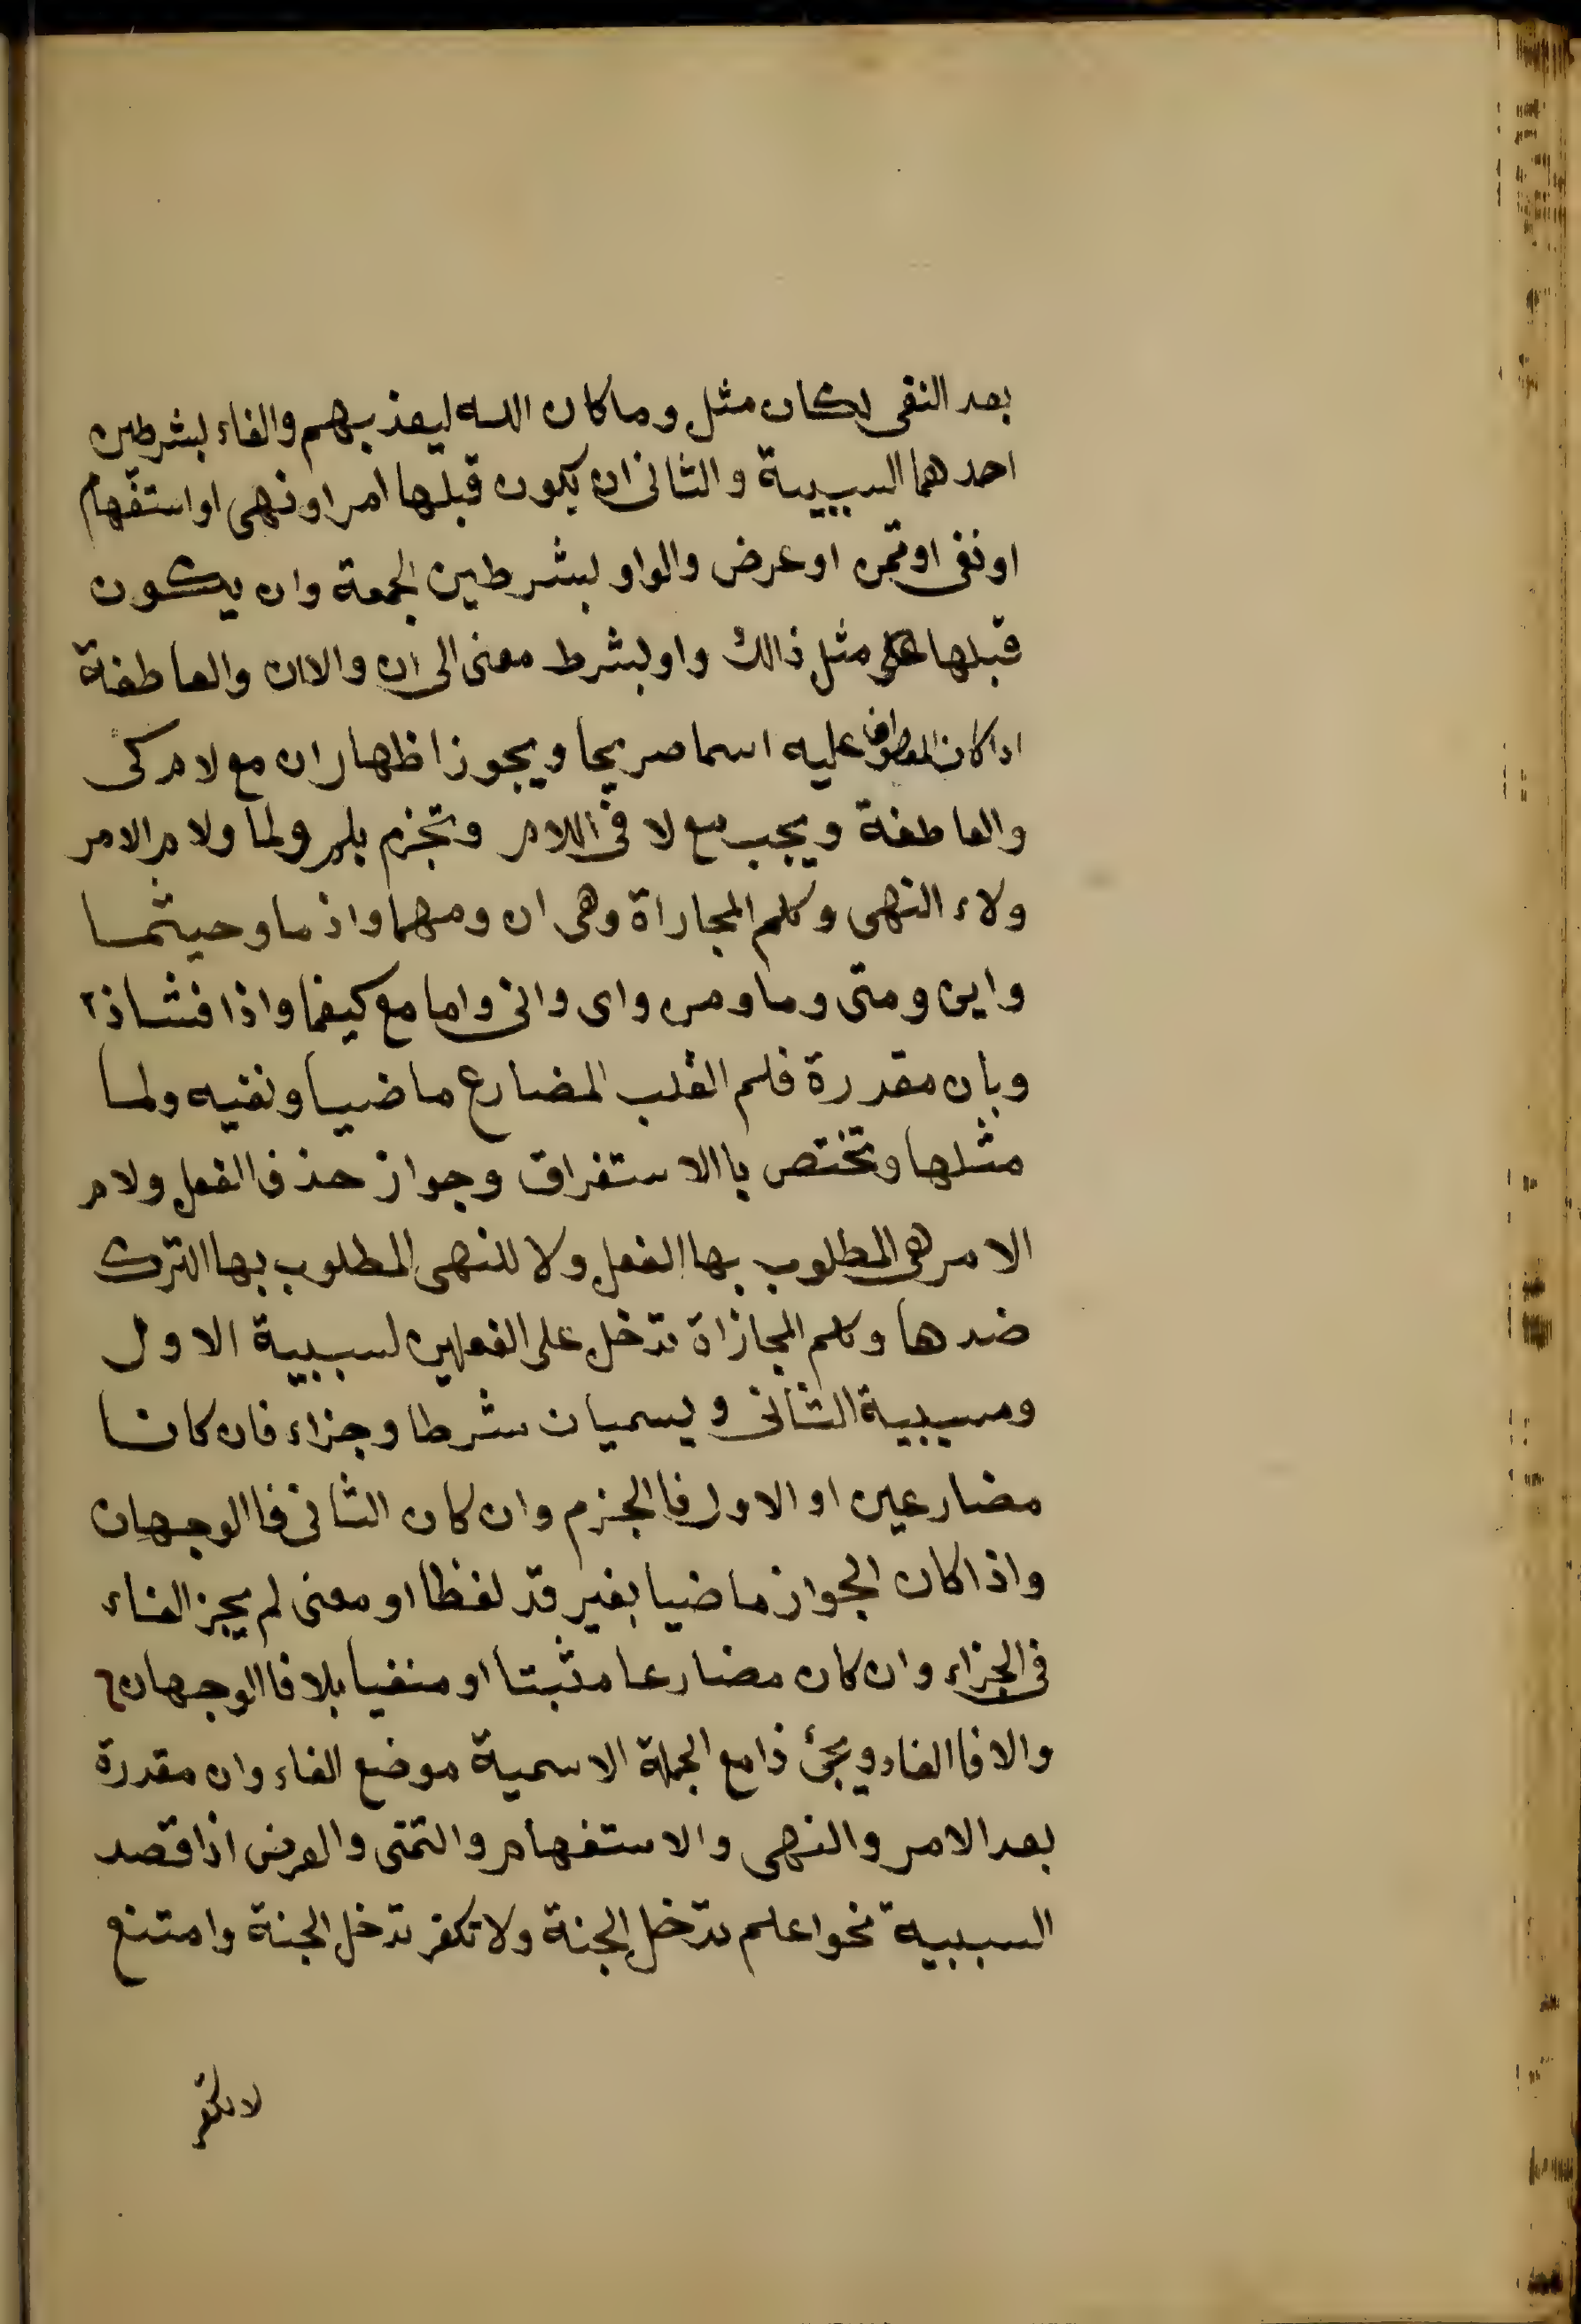 بعد النفى لكان مثل وما كان الله ليعذبهم والفاء لبشرطين
احدهما السببية والثانى ان يكون قبلها امر او نهى او استفهام
او نفى او تمن او عرض والواو لبشرطين الجمعة وان يكون
قبلها مثل ذالك واو لبشرط معنى الى ان والا ان والعاطفة
اذا كان المعطوف عليه اسما صريحا ويجوز اظهار ان مع لام كى
والعاطفة ويجب مع لا فى اللام وتجزم بلم ولما ولام الامر
ولاء النهى وكلم المجاراة وهى ان ومهما واذ ما وحيثما
واين ومتى وما ومن واى وانى واما مع كيفما واذا فشاذا
وبان مقدرة فلم القلب المضارع ماضيا ونفيه ولما
مثلها وتختص باالاستغراق وجواز حذف الفعل ولام
الامر هى المطلوب بها الفعل ولا للنهى المطلوب بها الترك
ضدها وكلم المجازاة تدخل على الفعلين لسببية الاول
ومسببية الثانى ويسميان شرطا وجزاء فان كانا
مضارعين او الاول فا الجزم وان كان الثانى فا الوجهان
واذا كان الجواز ماضيا بغير قد لفظا او معنى لم يجز الفاء
فى الجزاء وان كان مضارعا مثبتا او منفيا بلا فا الوجهان
والا فا الفاء ويجئ ذا مع الجملة الاسمية موضع الفاء وان مقدرة
بعد الامر والنهى والاستفهام والتمنى والعرض اذا قصد
السببية نحو اعلم تدخل الجنة ولا تكفر تدخل الجنة وامتنع
لا تكفر